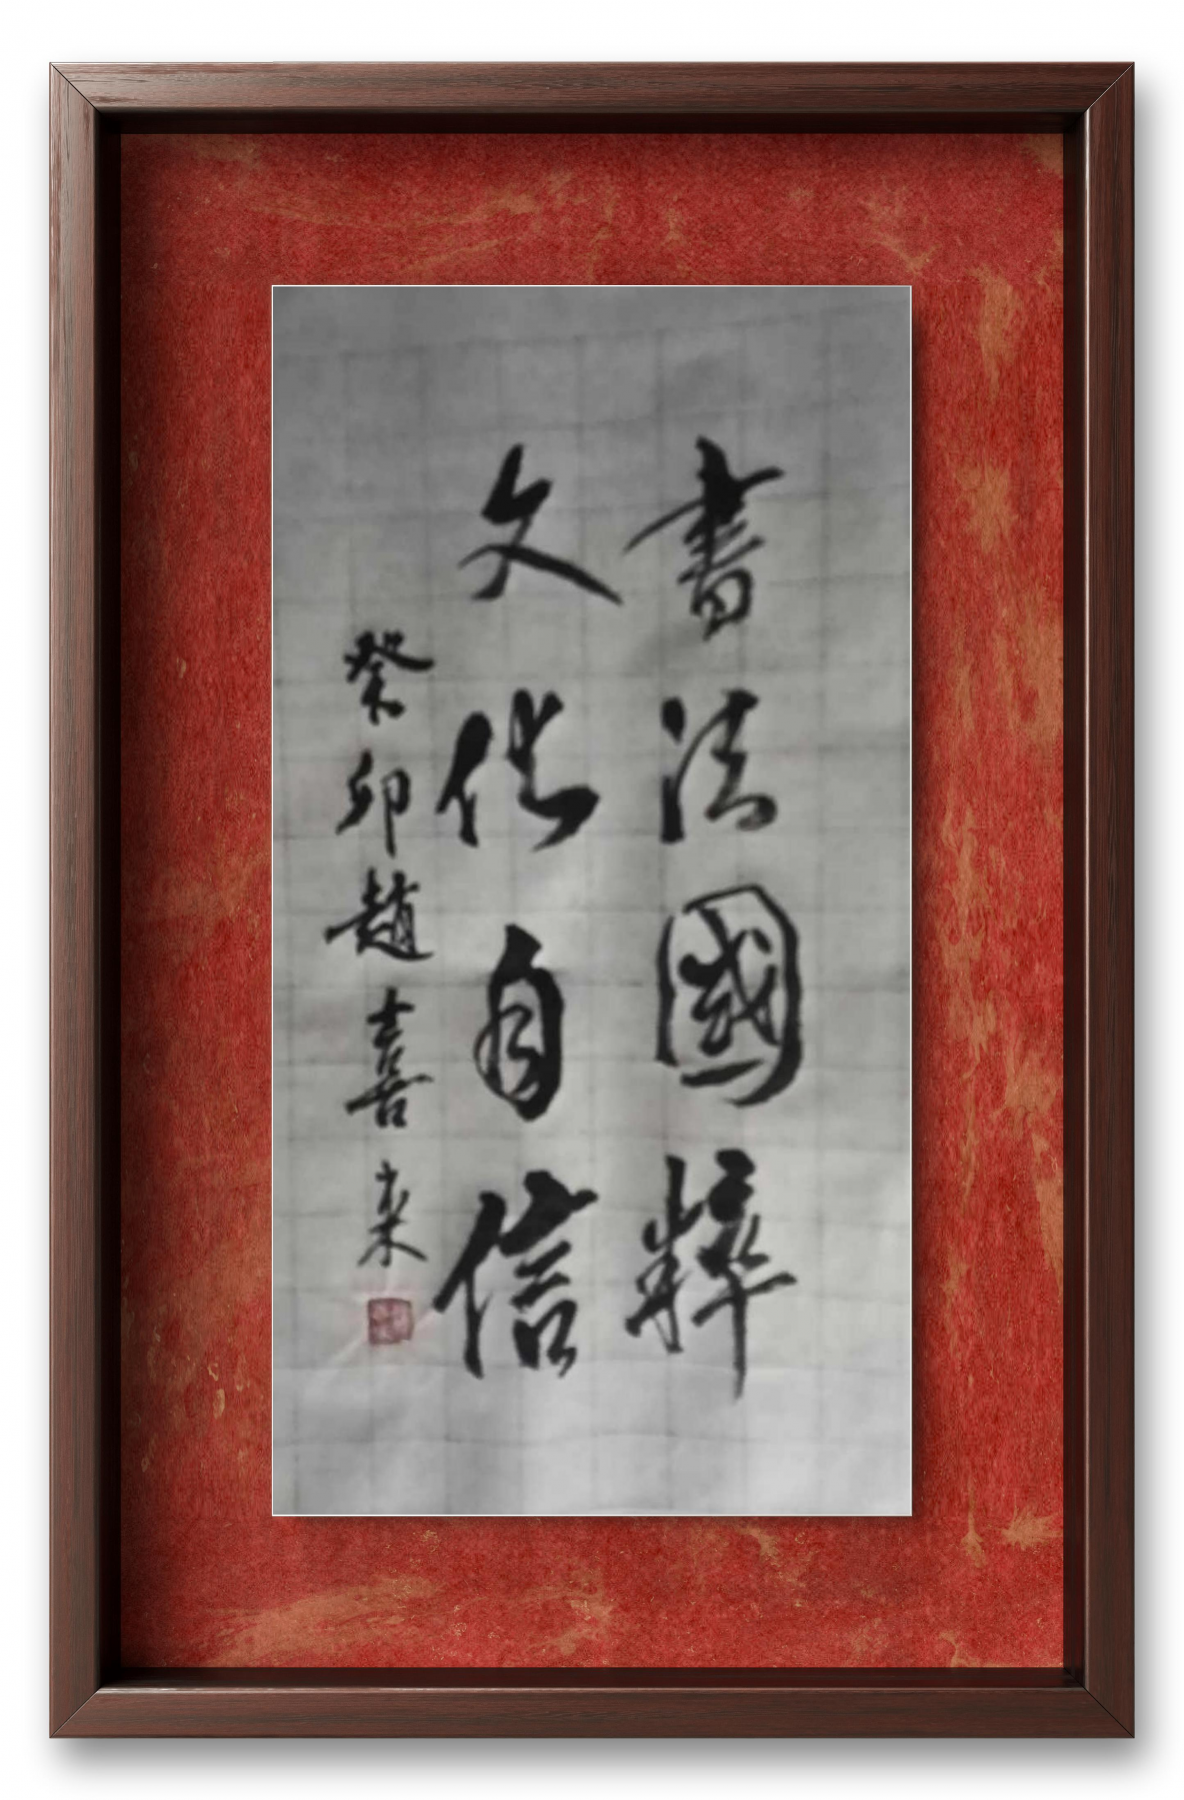 書法國粹
文化自信
癸卯趙喜来